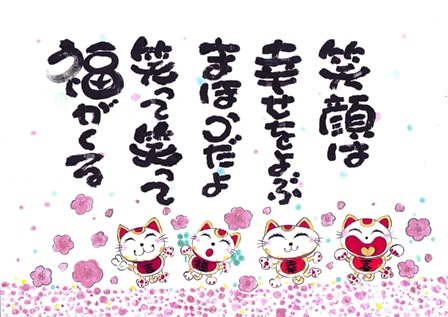 笑顔は
幸せをよぶ
まほうだよ
笑って笑って
福がくる